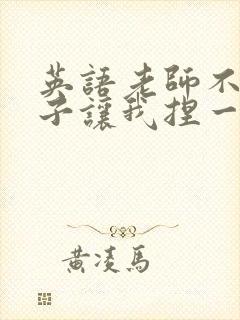 英語老師不
子讓我捏一
黃凌馬